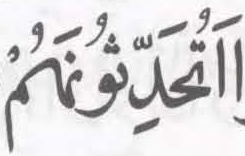 ااَتُحَدِّثُوْنَهُمْ